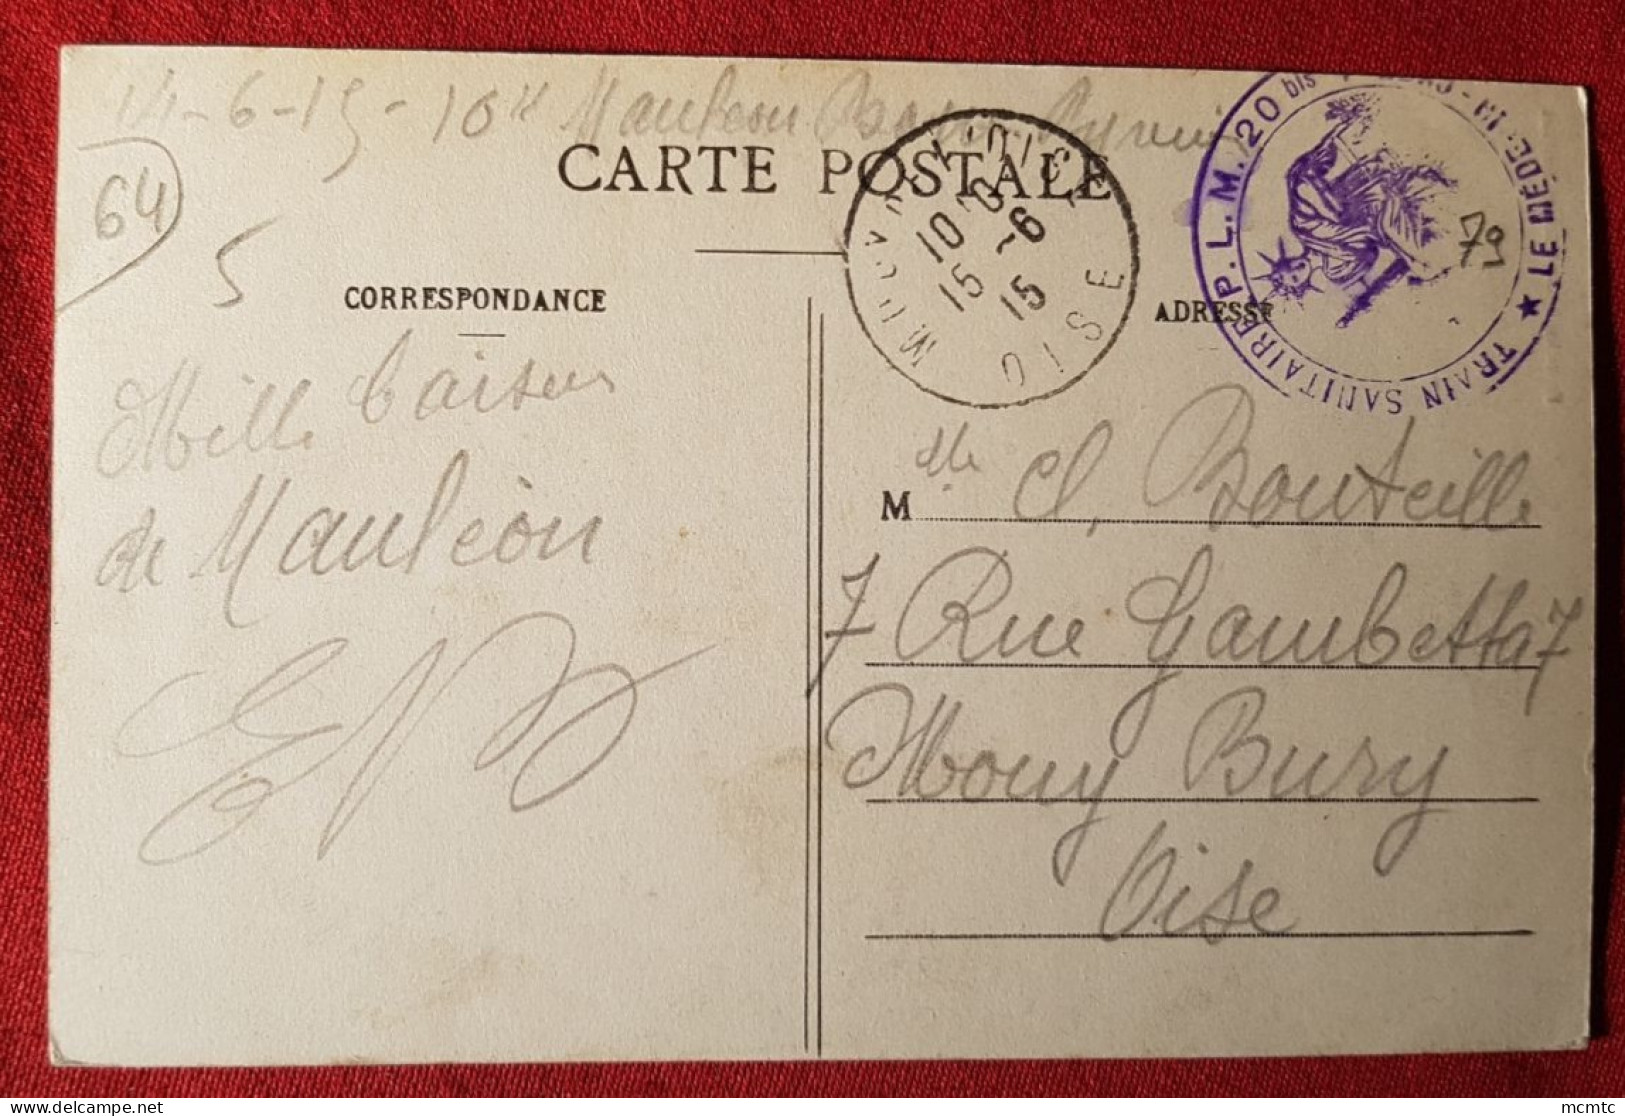 14-6-15-10H Mauléon Basses Pyrénées
CARTE POSTALE
64
5
CORRESPONDANCE
ADRESSE
10 20
15 -6
15
OISE
TRAIN SANITAIRE P.L.M. 20 bis
★ LE MÉDECIN-CHEF
79
Mille baisers
de Mauléon
Mlle Cl. Bouteille
7 Rue Gambetta 7
Mouy Bury
Oise
mcmtc